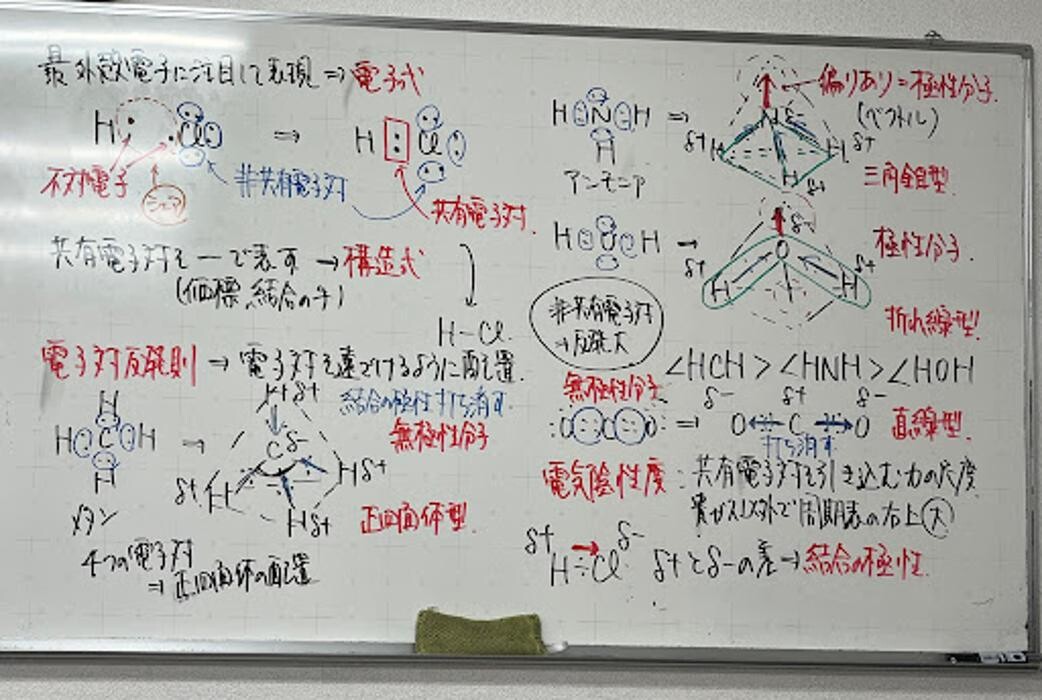 最外殻電子に注目して表現 ⇒ 電子式
H Cl ⇒ H : Cl
不対電子
シェア
非共有電子対
共有電子対.
共有電子対を ー で表す → 構造式
(価標, 結合の手)
H-Cl.
電子対反発則 → 電子対を遠ざけるように配置.
H
H C H →
H
メタン
4つの電子対
⇒ 正四面体の配置
Hδ+
Cδ-
δ+H
Hδ+
Hδ+
結合の極性打ち消す.
無極性分子
正四面体型.
H N H ⇒
H
アンモニア
偏りあり = 極性分子.
(ベクトル)
N δ-
δ+ H
H δ+
H δ+
三角錐型.
H O H →
δ-
O
δ+ H
H δ+
極性分子.
折れ線型.
非共有電子対
→ 反発大
∠HCH > ∠HNH > ∠HOH
無極性分子
δ- δ+ δ-
:O C O: ⇒ O C O
打ち消す
直線型.
電気陰性度 : 共有電子対を引き込む力の尺度
貴ガス以外で周期表の右上(大)
δ+ → δ-
H : Cl δ+とδ-の差 → 結合の極性.